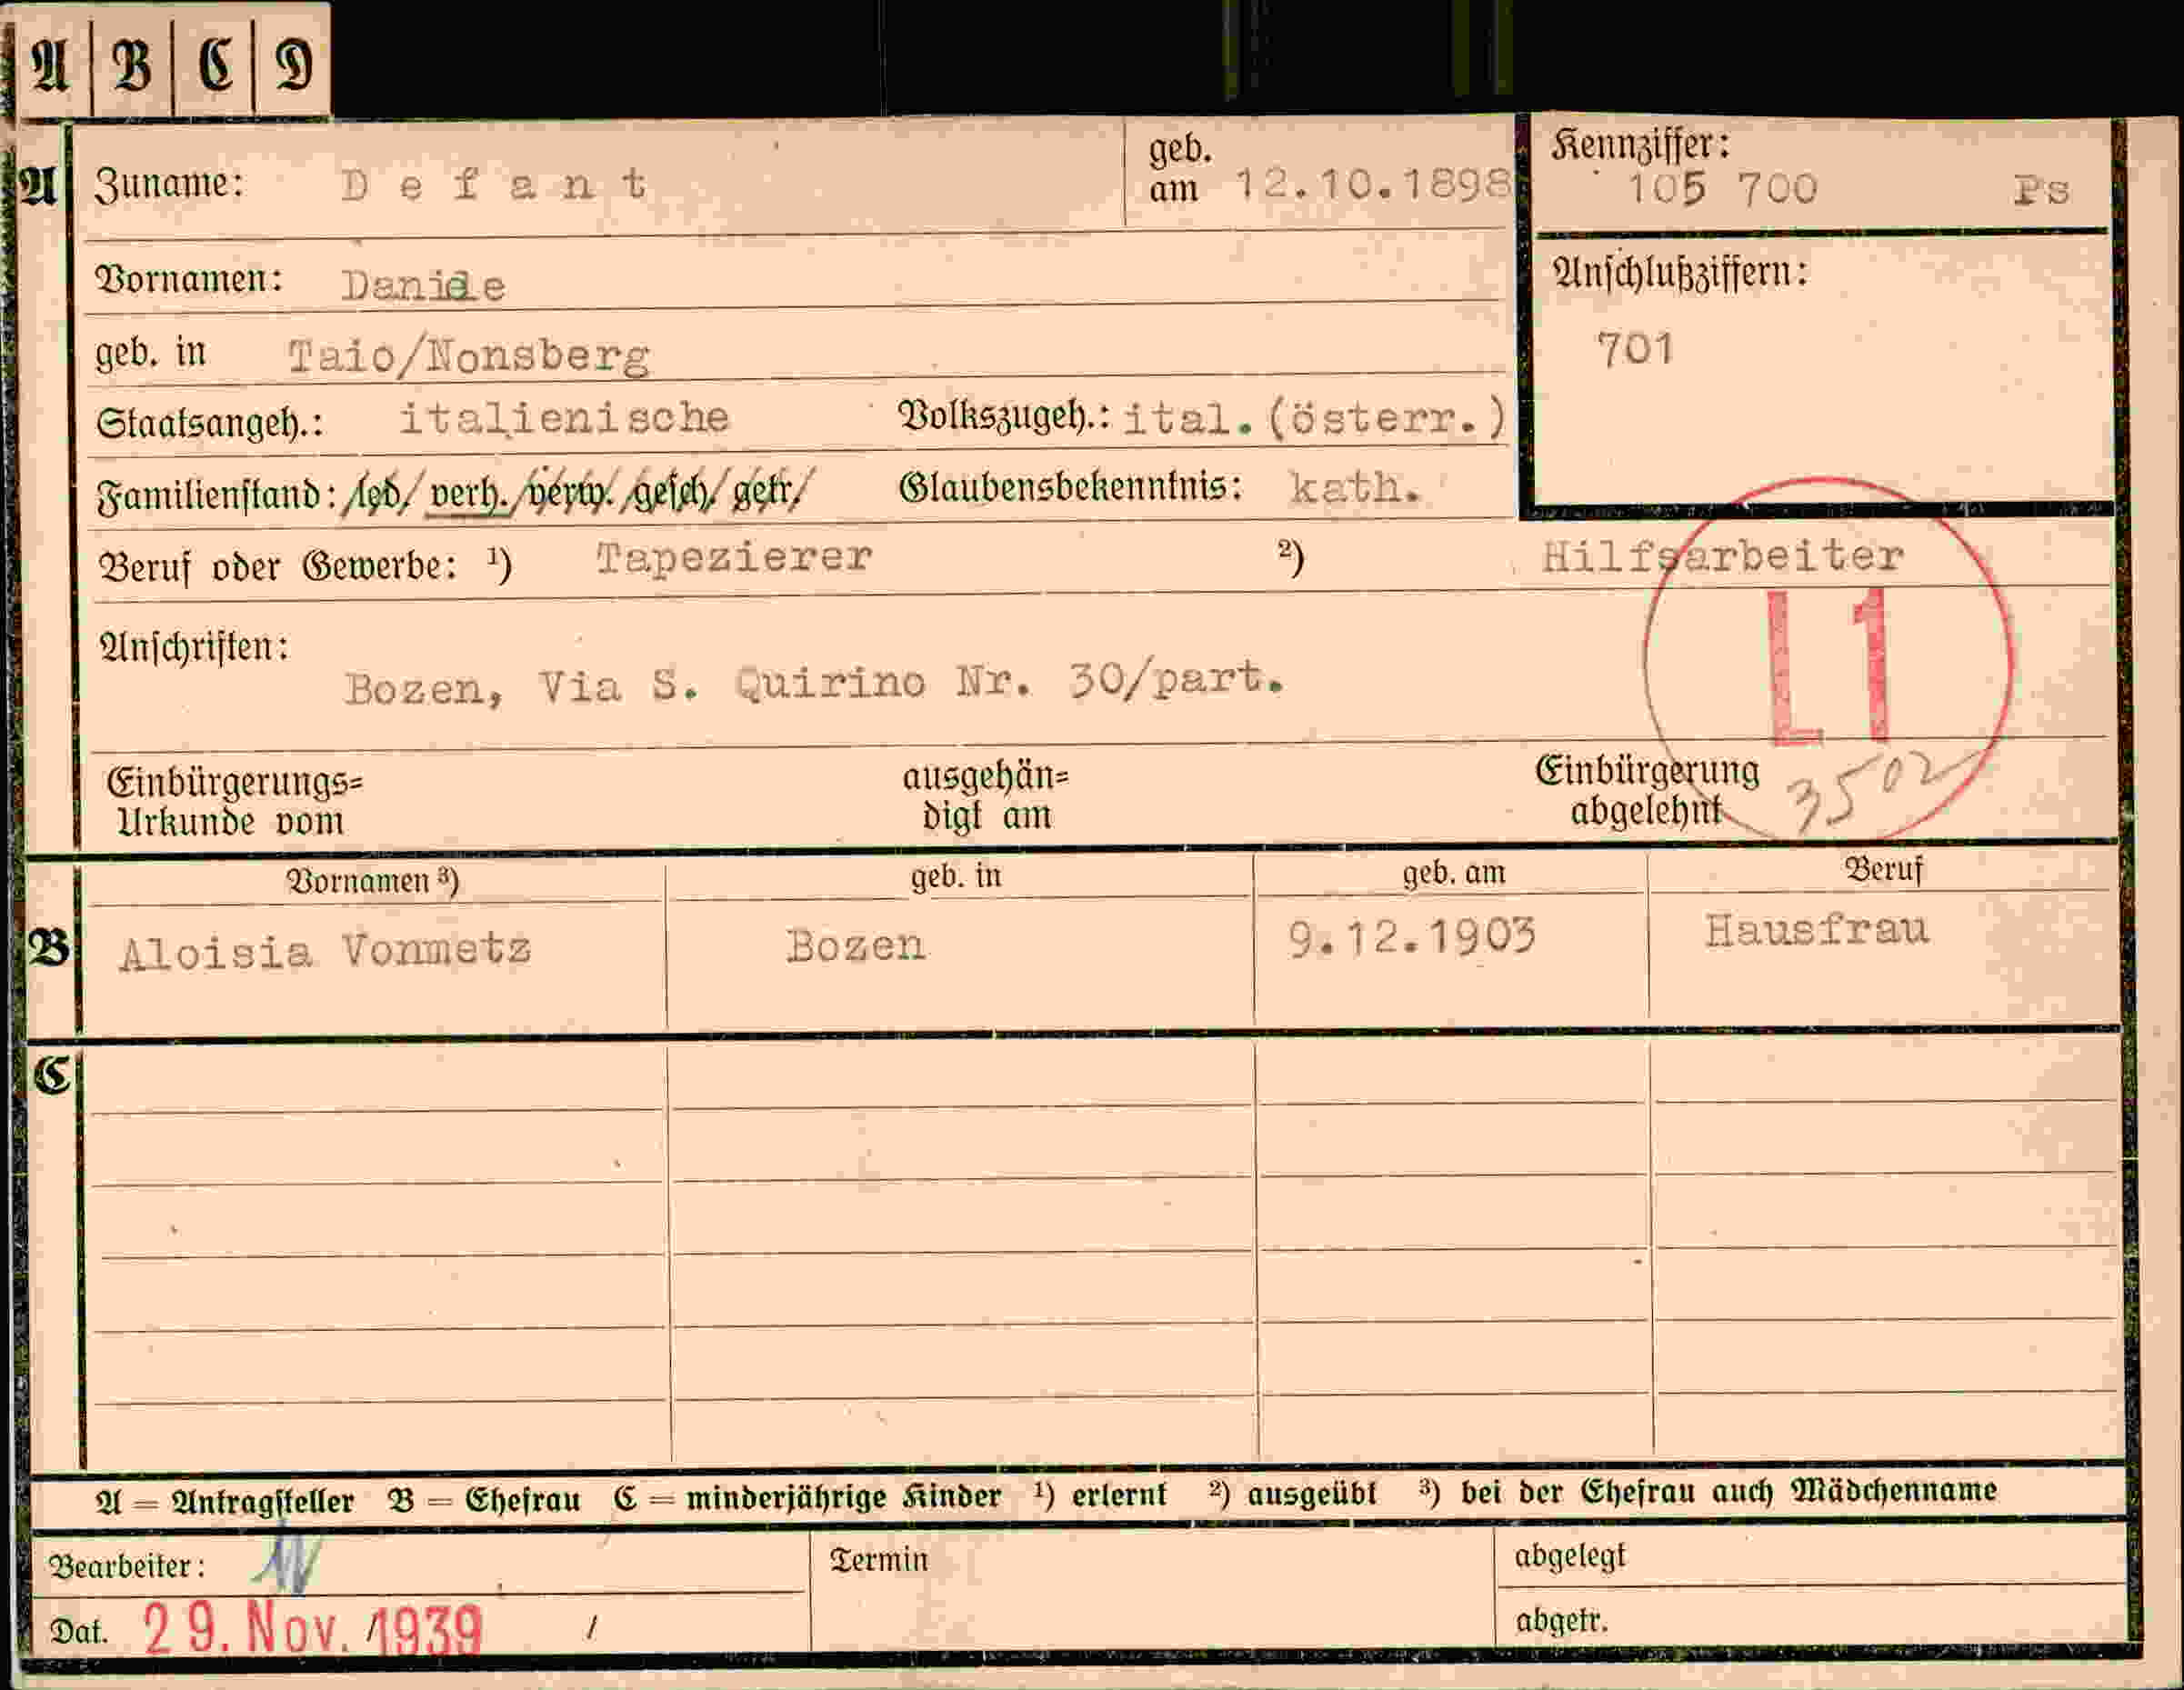 A B C D
A Zuname: Defant geb. am 12.10.1898 Kennziffer: 105 700 Ps
Vornamen: Daniele Anschlußziffern: 701
geb. in Taio/Nonsberg
Staatsangeh.: italienische Volkszugeh.: ital.(österr.)
Familienstand: led/ verh./verw./gesch/getr/ Glaubensbekenntnis: kath.
Beruf oder Gewerbe: ¹) Tapezierer ²) Hilfsarbeiter
L1
Anschriften:
Bozen, Via S. Quirino Nr. 30/part.
Einbürgerungs= ausgehän= Einbürgerung 3502
Urkunde vom digt am abgelehnt
Vornamen ³) geb. in geb. am Beruf
B Aloisia Vonmetz Bozen 9.12.1903 Hausfrau
C
A = Antragsteller B = Ehefrau C = minderjährige Kinder ¹) erlernt ²) ausgeübt ³) bei der Ehefrau auch Mädchenname
Bearbeiter: Termin abgelegt
Dat. 29. Nov. 1939 / abgetr.